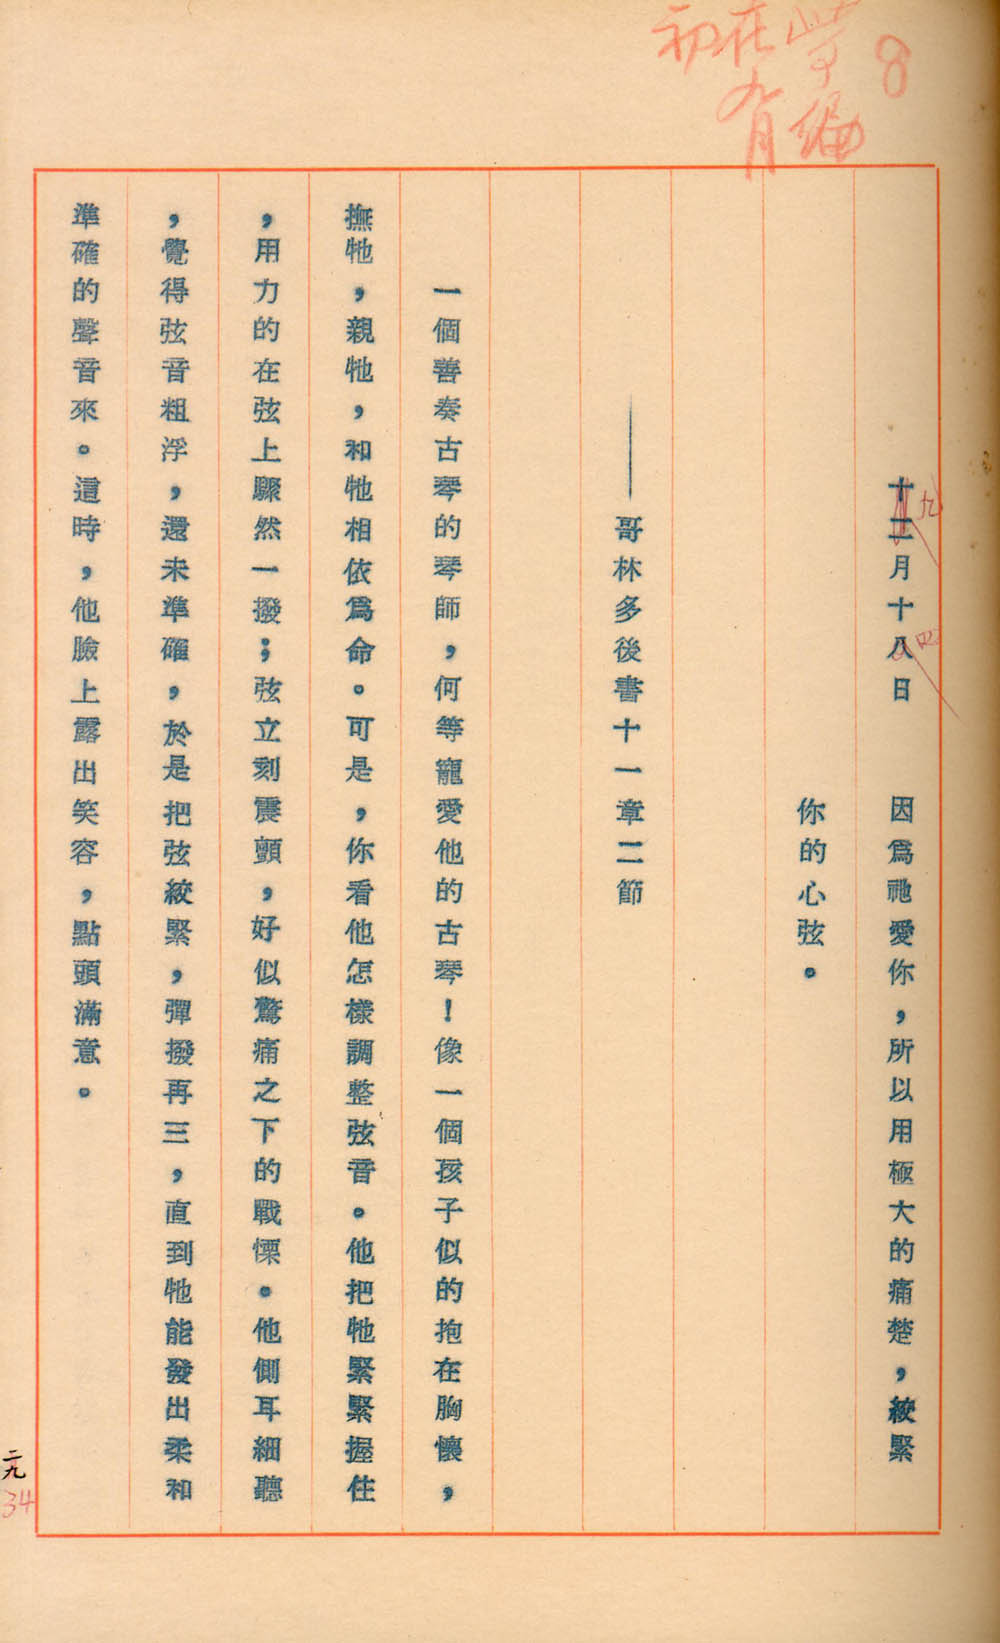 8
初在學
九月編
十二月十八日　因為祂愛你，所以用極大的痛楚，絞緊
九
四
你的心弦。
——哥林多後書十一章二節
一個善奏古琴的琴師，何等寵愛他的古琴！像一個孩子似的抱在胸懷，
撫牠，親牠，和牠相依為命。可是，你看他怎樣調整弦音。他把牠緊緊握住
，用力的在弦上驟然一撥；弦立刻震顫，好似驚痛之下的戰慄。他側耳細聽
，覺得弦音粗浮，還未準確，於是把弦絞緊，彈撥再三，直到牠能發出柔和
準確的聲音來。這時，他臉上露出笑容，點頭滿意。
二九
34